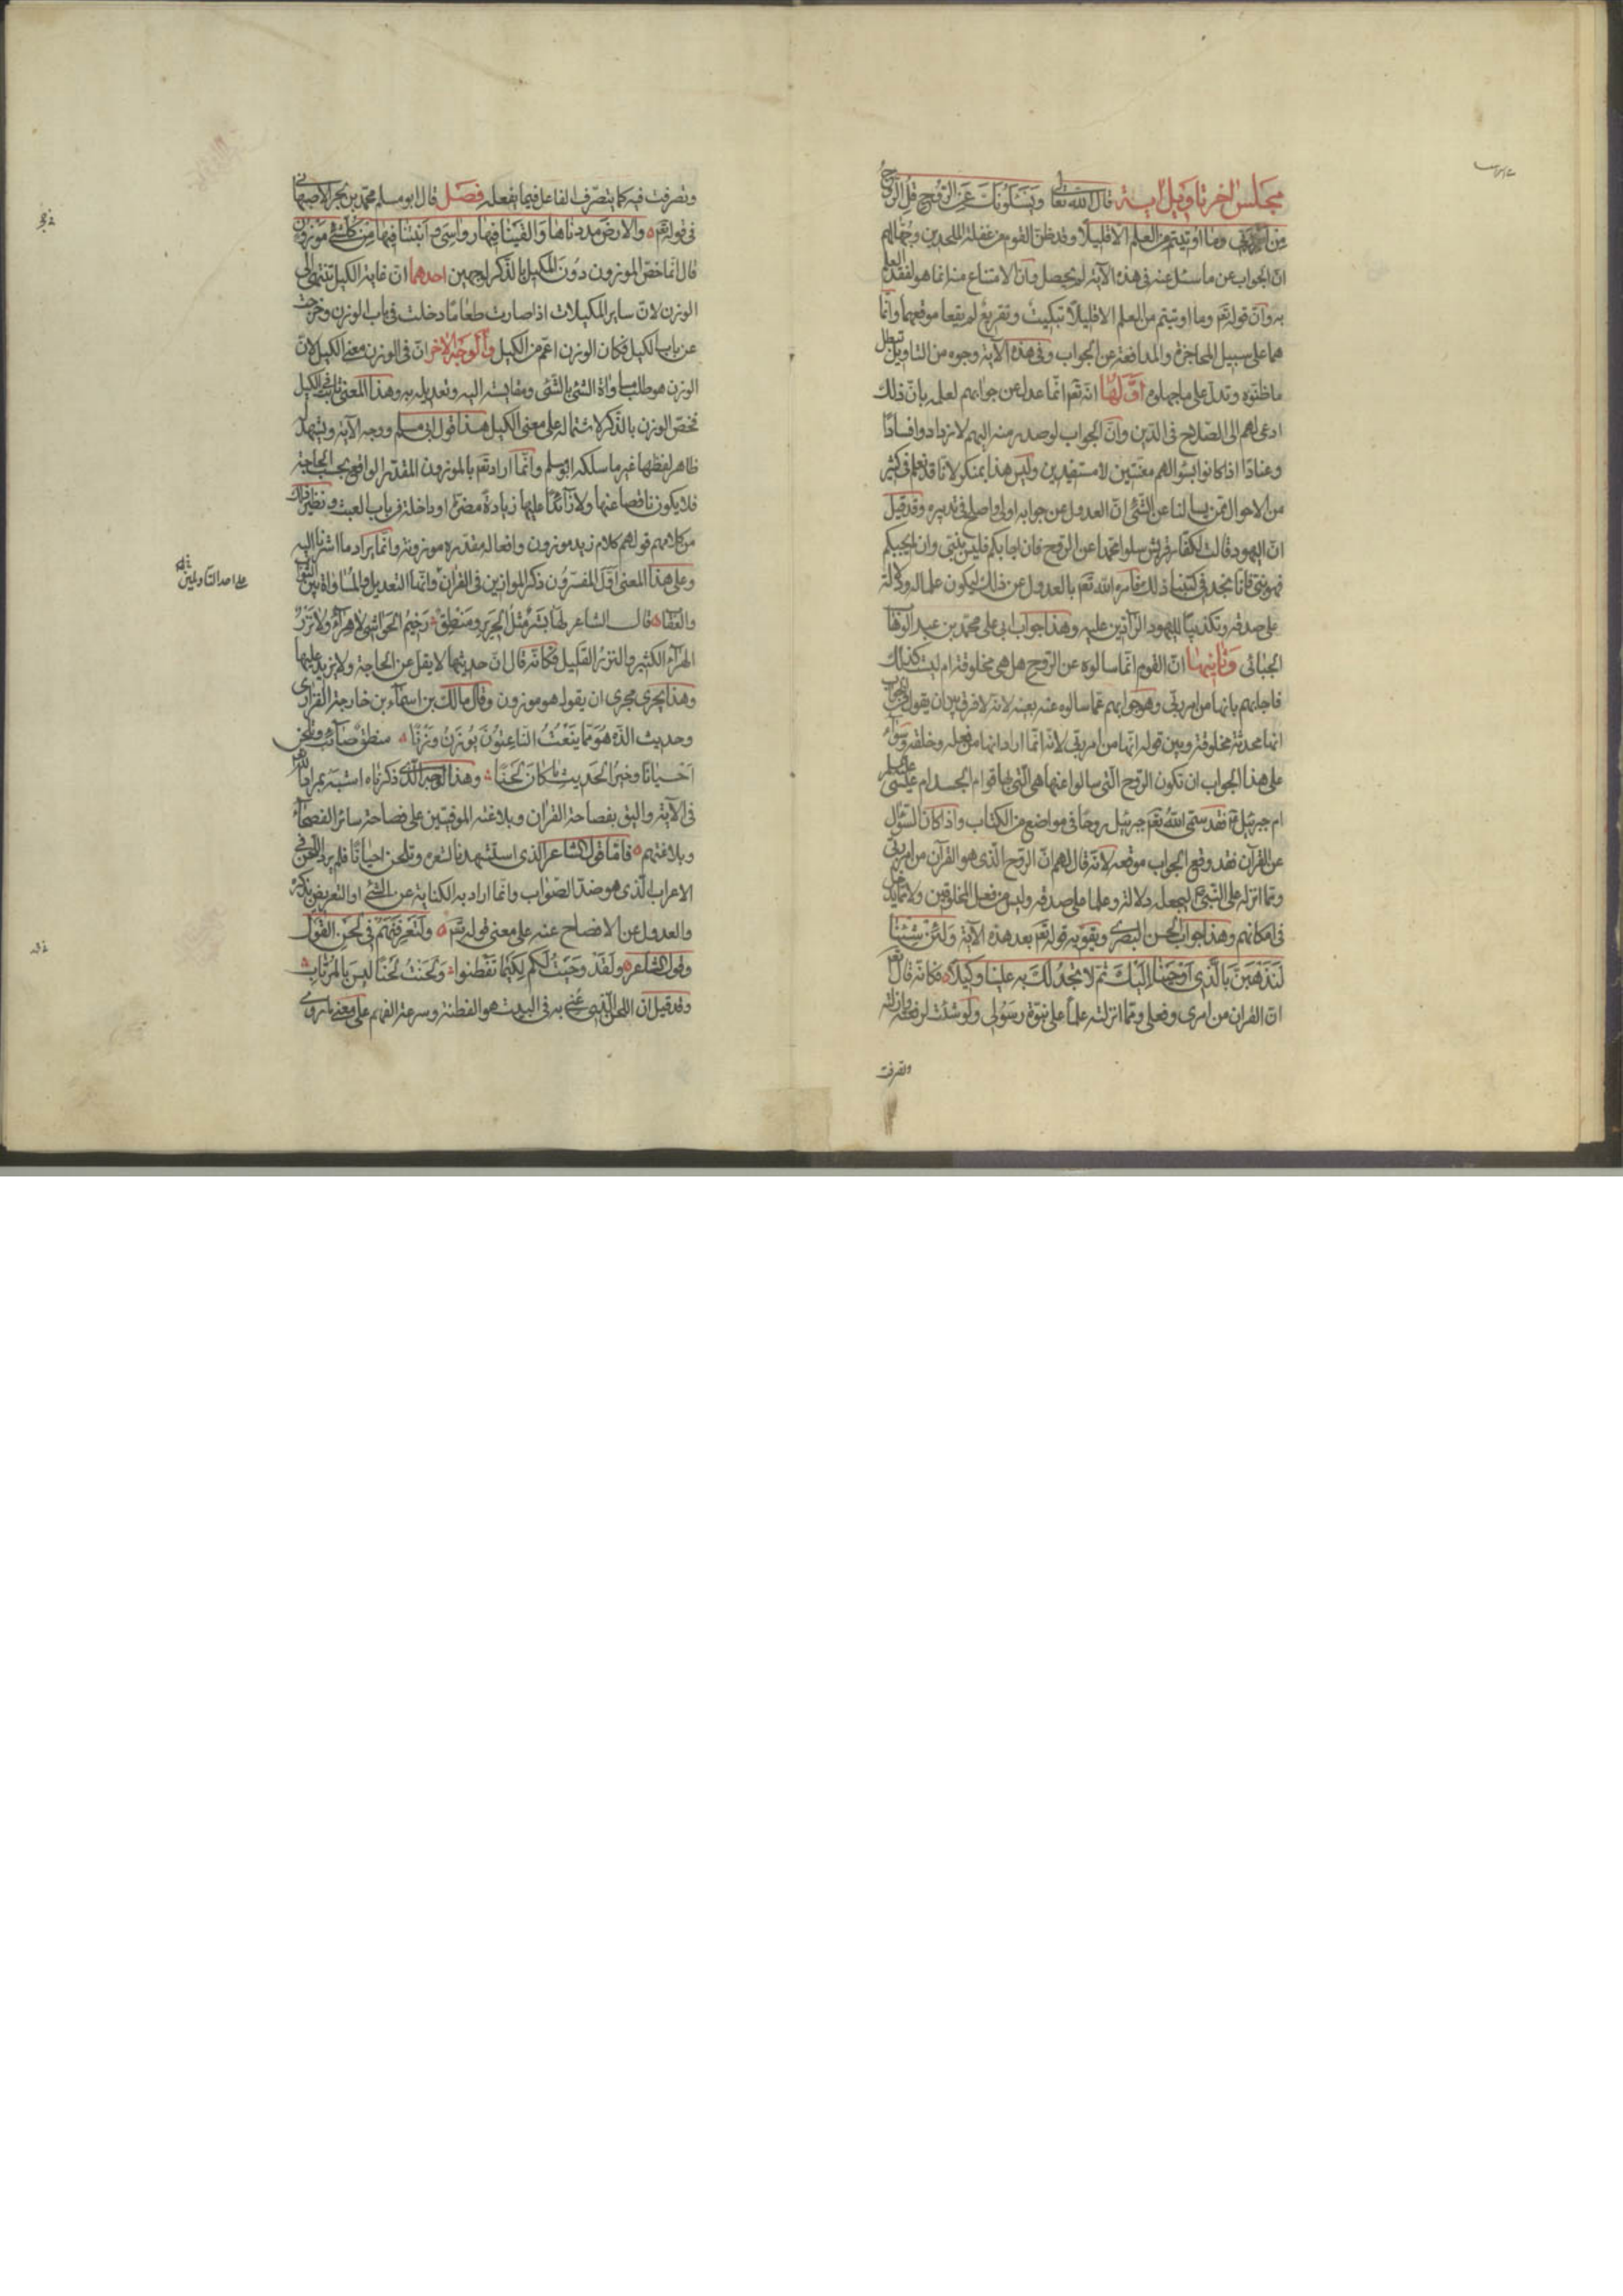 مجلس اخر تاويل اية قال الله تعالى ويسئلونك عن الروح قل الروح
من امر ربي وما اوتيتم من العلم الا قليلا وقد ظن القوم من غفلة الملحدين وجهالهم
ان الجواب عن ما سئل عنه في هذه الآية لم يحصل وان الامتناع منه انما هو لفقد العلم
به وان قوله تعم وما اوتيتم من العلم الا قليلا تبكيت وتقريع لم يقعا موقعهما وانما
هما على سبيل المحاجزة والمدافعة عن الجواب وفي هذه الآية وجوه من التاويل تبطل
ما ظنوه وتدل على ما جهلوه اولها انه تعم انما عدل عن جوابهم لعلمه بان ذلك
ادعى لهم الى الصلاح في الدين وان الجواب لو صدر منه اليهم لازدادوا فسادا
وعنادا اذ كانوا بسؤالهم معنتين لا مستفيدين وليس هذا بمنكر لانا قد نعلم في كثير
من الاحوال ممن يسالنا عن الشئ ان العدول عن جوابه اولى واصلح في تدبيره وقد قيل
ان اليهود قالت لكفار قريش سلوا محمدا عن الروح فان اجابكم فليس بنبي وان لم يجبكم
فهو نبي فانا نجد في كتبنا ذلك فامره الله تعم بالعدول عن ذلك ليكون علما له ودلالة
على صدقه وتكذيبا لليهود الرادين عليه وهذا جواب ابي على محمد بن عبد الوهاب
الجبائي وثانيها ان القوم انما سالوه عن الروح هل هي مخلوقة ام ليست كذلك
فاجابهم بانها من امر ربي وهو جوابهم عما سالوه عنه بعينه لانه لا فرق بين ان يقول في الجواب
انها محدثة مخلوقة وبين قوله انها من امر ربي لانه انما اراد انها من فعله وخلقه وسواء
على هذا الجواب ان تكون الروح التي سالوا عنها هي التي بها قوام الجسد ام عيسى عليه السلم
ام جبرئيل فقد سمى الله تعم جبرئيل روحا في مواضع من الكتاب واذا كان السؤال
عن القرآن فقد وقع الجواب موقعه لانه قال لهم ان الروح الذي هو القرآن من امر ربي
ومما انزله على النبي ليجعله دلالة وعلما على صدقه وليس من فعل المخلوقين ولا مما يدخل
في امكانهم وهذا جواب الحسن البصري ويقويه قوله تعم بعد هذه الآية ولئن شئنا
لنذهبن بالذي اوحينا اليك ثم لا تجد لك به علينا وكيلا فكانه قال تعم
ان القران من امري وفعلي ومما انزلته علما على نبوة رسولي ولو شئت لرفعته وازلته
وتصرفت
وتصرفت فيه كما يتصرف الفاعل فيما يفعله فصل قال ابو مسلم محمد بن بحر الاصبهاني
في قوله تعم والارض مددناها والقينا فيها رواسي وانبتنا فيها من كل شئ موزون
قال انما خص الموزون دون المكيل بالذكر لوجهين احدهما ان غاية الكيل تنتهي الى
الوزن لان ساير المكيلات اذا صارت طعاما دخلت في باب الوزن وخرجت
عن باب الكيل فكان الوزن اعم من الكيل والوجه الاخر ان في الوزن معنى الكيل لان
الوزن هو طلب مساواة الشئ بالشئ ومقايسته اليه وتعديله به وهذا المعنى ثابت في الكيل
فخص الوزن بالذكر لاشتماله على معنى الكيل هذا قول ابي مسلم ووجه الآية ويشهد له
ظاهر لفظها غير ما سلكه ابو مسلم وانما اراد تعم بالموزون المقدر الواقع بحسب الحاجة
فلا يكون ناقصا عنها ولا زائدا عليها زيادة مضرة او داخلة في باب العبث ونظير ذلك
من كلامهم قولهم كلام زيد موزون وافعاله مقدرة موزونة وانما يراد ما اشرنا اليه
وعلى هذا المعنى اول المفسرون ذكر الموازين في القران وانها التعديل والمساواة بين الثواب
على احد التاويلين
والعقاب قال الشاعر لها بشر مثل الحرير ومنطق رخيم الحواشي لا هراء ولا نزر
الهراء الكثير والنزر القليل فكانه قال ان حديثها لا يقل عن الحاجة ولا يزيد عليها
وهذا يجري مجرى ان يقول هو موزون وقال مالك بن اسماء بن خارجة الفزاري
وحديث الذه هو مما ينعت الناعتون يوزن وزنا منطق صائب وتلحن
احيانا وخير الحديث ما كان لحنا وهذا الوجه الذي ذكرناه اشبه بمراد الله
في الآية واليق بفصاحة القران وبلاغته الموفيتين على فصاحة سائر الفصحاء
وبلاغتهم فاما قول الشاعر الذي استشهدنا بشعره وتلحن احيانا فلم يرد اللحن في
الاعراب الذي هو ضد الصواب وانما اراد به الكناية عن الشئ او التعريض بذكره
والعدول عن الافصاح عنه على معنى قوله تعم ولتعرفنهم في لحن القول
وقول الشاعر ولقد وحيت لكم لكيما تفطنوا ولحنت لحنا ليس بالمرتاب
وقد قيل ان اللحن الذي عني به في البيت هو الفطنة وسرعة الفهم على معنى ما روي